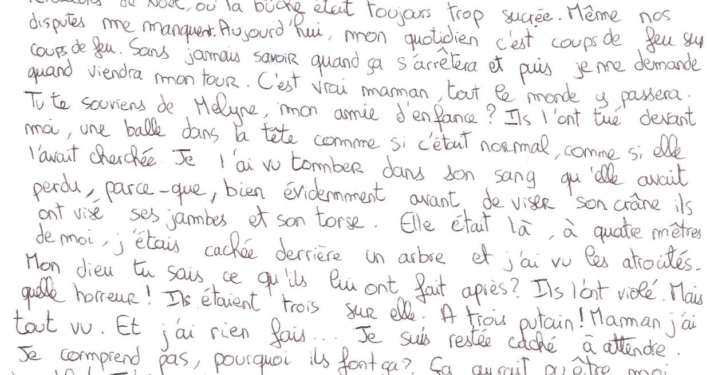 de Noël, où la bûche était toujours trop sucrée. Même nos
disputes me manquent. Aujourd'hui, mon quotidien c'est coups de feu sur
coups de feu. Sans jamais savoir quand ça s'arrêtera et puis je me demande
quand viendra mon tour. C'est vrai maman, tout le monde y passera.
Tu te souviens de Mélyne, mon amie d'enfance ? Ils l'ont tué devant
moi, une balle dans la tête comme si c'était normal, comme si elle
l'avait cherchée Je l'ai vu tomber dans son sang qu'elle avait
perdu, parce-que, bien évidemment avant de viser son crâne ils
ont visé ses jambes et son torse. Elle était là, à quatre mètres
de moi, j'étais cachée derrière un arbre et j'ai vu les atrocités.
Mon dieu tu sais ce qu'ils lui ont fait après? Ils l'ont violé. Mais
quelle horreur! Ils étaient trois sur elle. A trois putain! Maman j'ai
tout vu. Et j'ai rien fais... Je suis restée caché à attendre.
Je comprend pas, pourquoi ils font ça? Ça aurait pu être moi